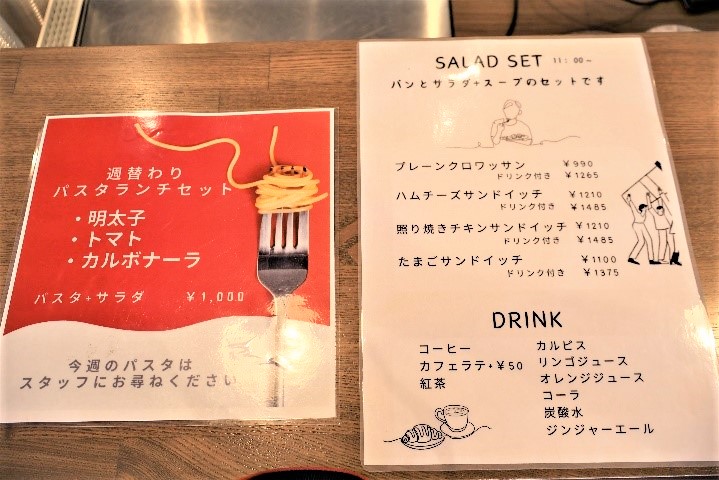 週替わり
パスタランチセット
・明太子
・トマト
・カルボナーラ
パスタ+サラダ ¥1,000
今週のパスタは
スタッフにお尋ねください
SALAD SET 11:00~
パンとサラダ+スープのセットです
プレーンクロワッサン ¥990
ドリンク付き ¥1265
ハムチーズサンドイッチ ¥1210
ドリンク付き ¥1485
照り焼きチキンサンドイッチ ¥1210
ドリンク付き ¥1485
たまごサンドイッチ ¥1100
ドリンク付き ¥1375
DRINK
コーヒー
カフェラテ+¥50
紅茶
カルピス
リンゴジュース
オレンジジュース
コーラ
炭酸水
ジンジャーエール